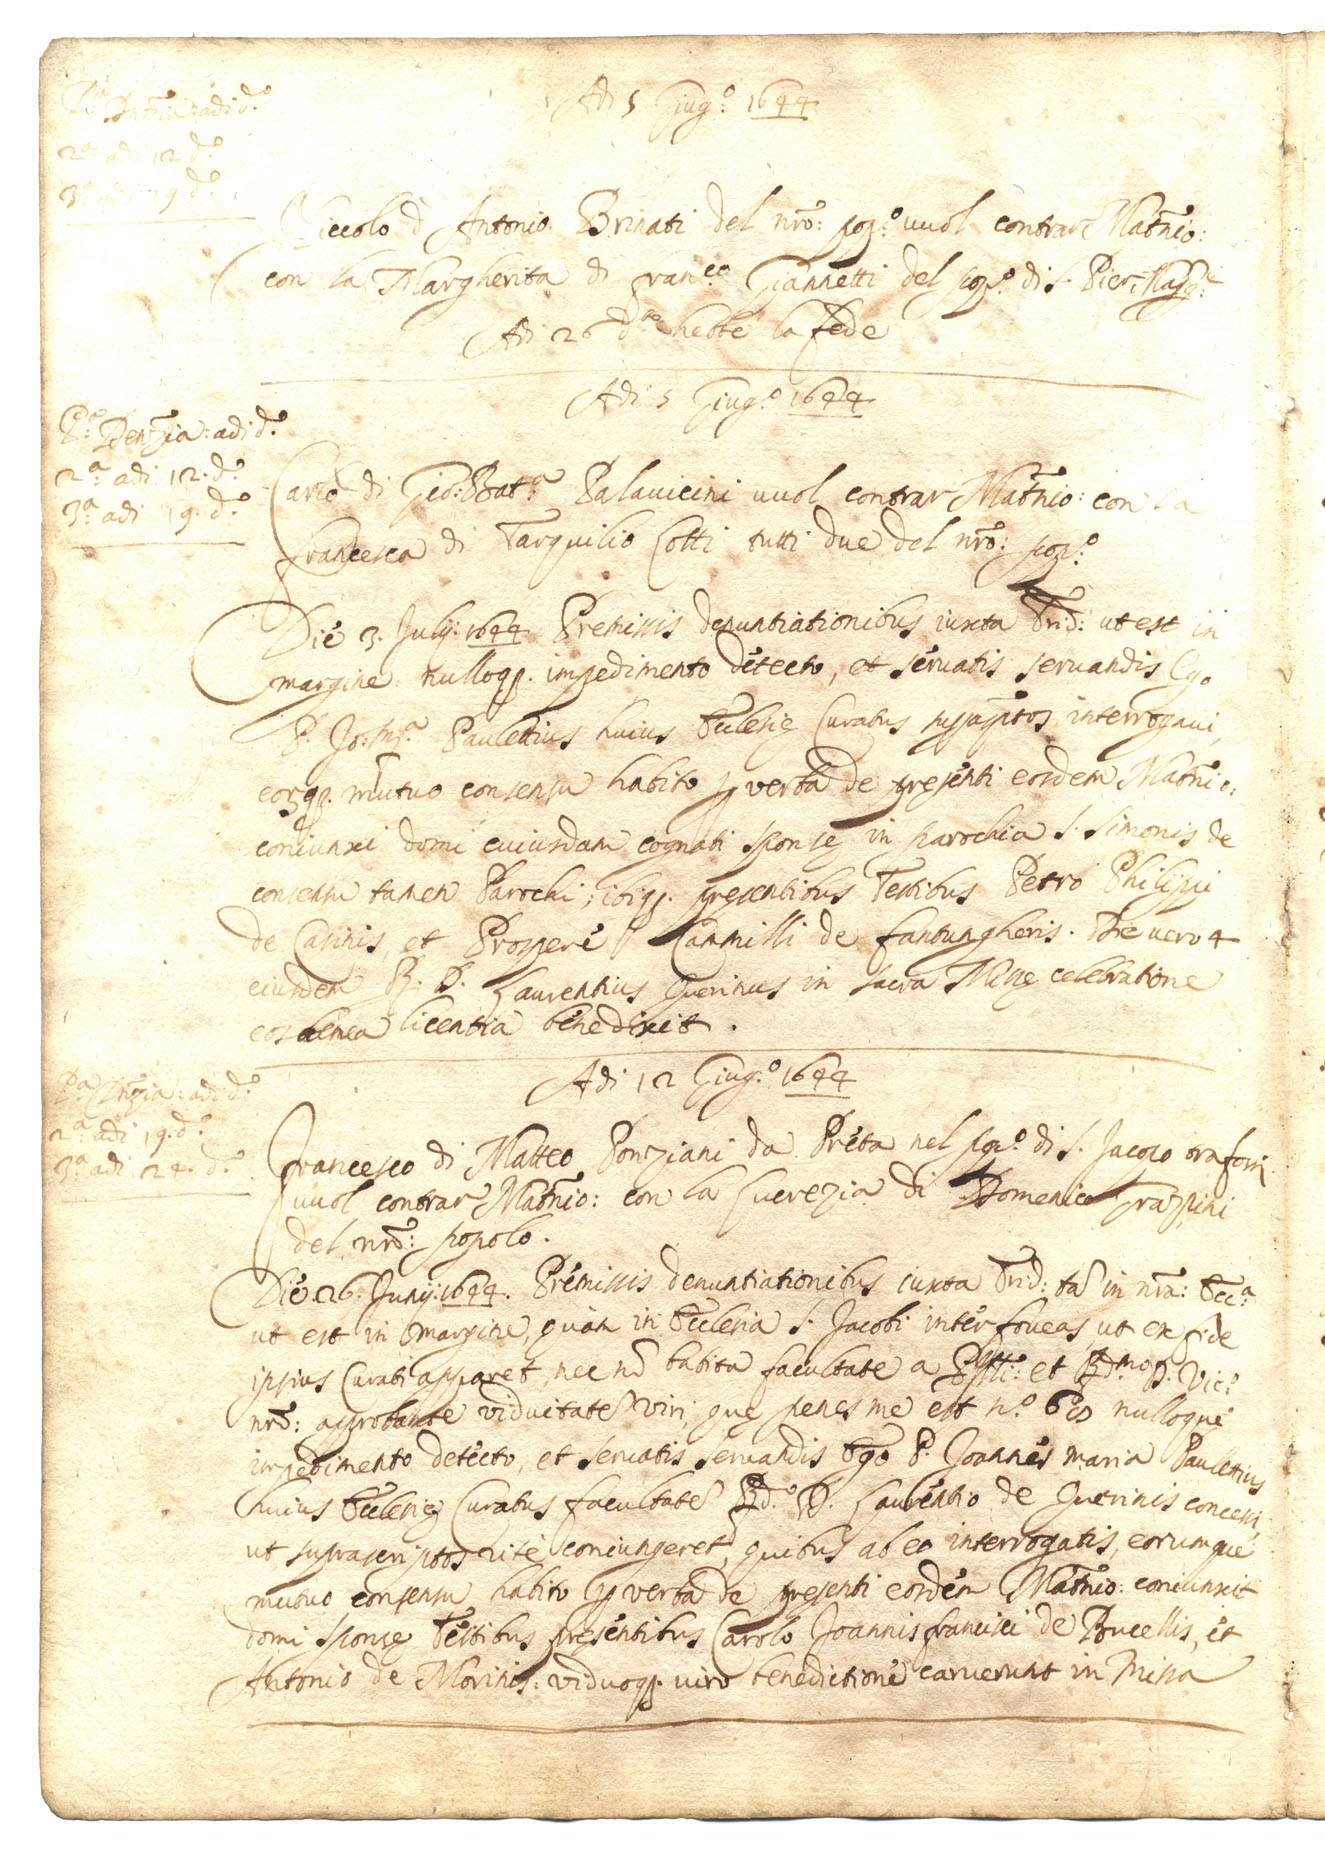 Adi 5 Giug.º 1644
P.ª Dentia: adi d.º
2.ª adi 12 d.º
3.ª adi 19 d.º
Niccolo d Antonio Brinati del nrõ: pop.º vuol contrar Matñio:
con la Margherita di Fran.co Giannetti del pop.º di S. Pier Magg.e
Adi 26 d.to hebbe la fede
Adi 5 Giug.º 1644
P.ª Denzia: adi d.º
2.ª adi 12. d.º
3.ª adi 19. d.º
Carlo di Gio: Batt.ª Palavicini vuol contrar Matñio: con la
francesca di Tarquilio Cotti tutti due del nrõ: pop.º
Die 3. Julij. 1644 Premissis denuntiationibus iuxta Trid: ut est in
margine nulloq. impedimento detecto, et servatis servandis Ego
P. Jo: M.ª Paulettius huius Ecclesię Curatus interrogavi,
eorq. mutuo consensu habito p verba de presenti eosdem Matñio:
coniunxi domi cuiusdam cognati sponsę in parochia S. Simonis de
consensu tamen Parochi, ibiq. presentibus Testibus Petro Philippi
de Casinis, et Prospero Cammilli de fantungheris. Die vero 4
eiusdem R. D. Laurentius Guerinus in sacra Missę celebratione
eos de mea licentia benedixit.
Adi 12 Giug.º 1644
P.ª Dñzia: adi d.º
2.ª adi 19. d.º
3.ª adi 24. d.º
Francesco di Matteo Ponziani da Preta nel pop.º di S. Jacopo tra fossi
vuol contrar Matñio: con la Lucrezia di Domenico Frazzini
del nrõ: popolo.
Die 26. Junij. 1644. Premissis denuntiationibus iuxta Trid: tã in nrã: Ecc.ª
ut est in margine, quàm in Ecclesia S. Jacobi inter foveas, ut ex fide
ipsius Curati apparet, nec nõ habita facultate a et R.mo D. Vic.º
nrõ: approbante viduitate viri, quę penes me est n.º 60 nulloque
impedimento detecto, et servatis servandis Ego P. Joannes Maria Paulettius
huius Ecclesię Curatus facultate R.do D. Laurentio de Guerinis concessi,
ut suprascriptos rite coniungeret, quibus ab eo interrogatis, eorumque
mutuo consensu habito p verba de presenti eosdem Matñio: coniunxit
domi sponsę Testibus presentibus Carolo Joannis francisci de Pucellis, et
Antonio de Morinis: viduoq. viro benedictione caruerunt in Missa